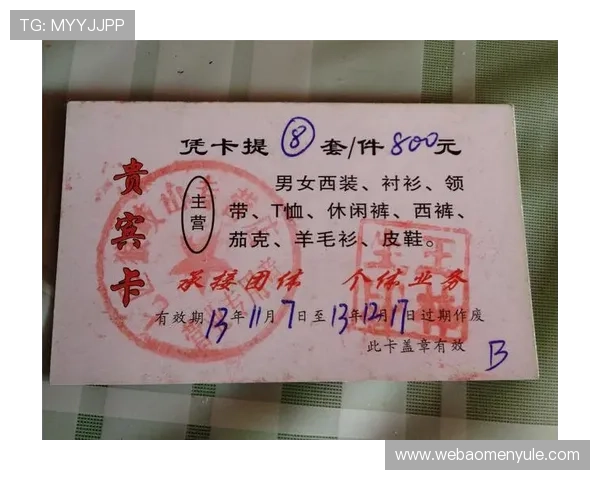 TG: MYYJJPP
凭卡提⑧套/件800元
贵宾卡
主营
男女西装、衬衫、领
带、T恤、休闲裤、西裤、
茄克、羊毛衫、皮鞋。
承接团体 个体业务
有效期13年11月7日至13年12月17日过期作废
此卡盖章有效
B
www.webaomenyule.com